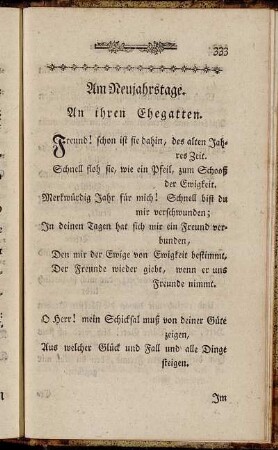 333
Am Neujahrstage.
An ihren Ehegatten.
Freund! schon ist sie dahin, des alten Jah-
res Zeit.
Schnell floh sie, wie ein Pfeil, zum Schooß
der Ewigkeit.
Merkwürdig Jahr für mich! Schnell bist du
mir verschwunden;
In deinen Tagen hat sich mir ein Freund ver-
bunden,
Den mir der Ewige von Ewigkeit bestimmt,
Der Freunde wieder giebt, wenn er uns
Freunde nimmt.
O Herr! mein Schicksal muß von deiner Güte
zeigen,
Aus welcher Glück und Fall und alle Dinge
steigen.
Im